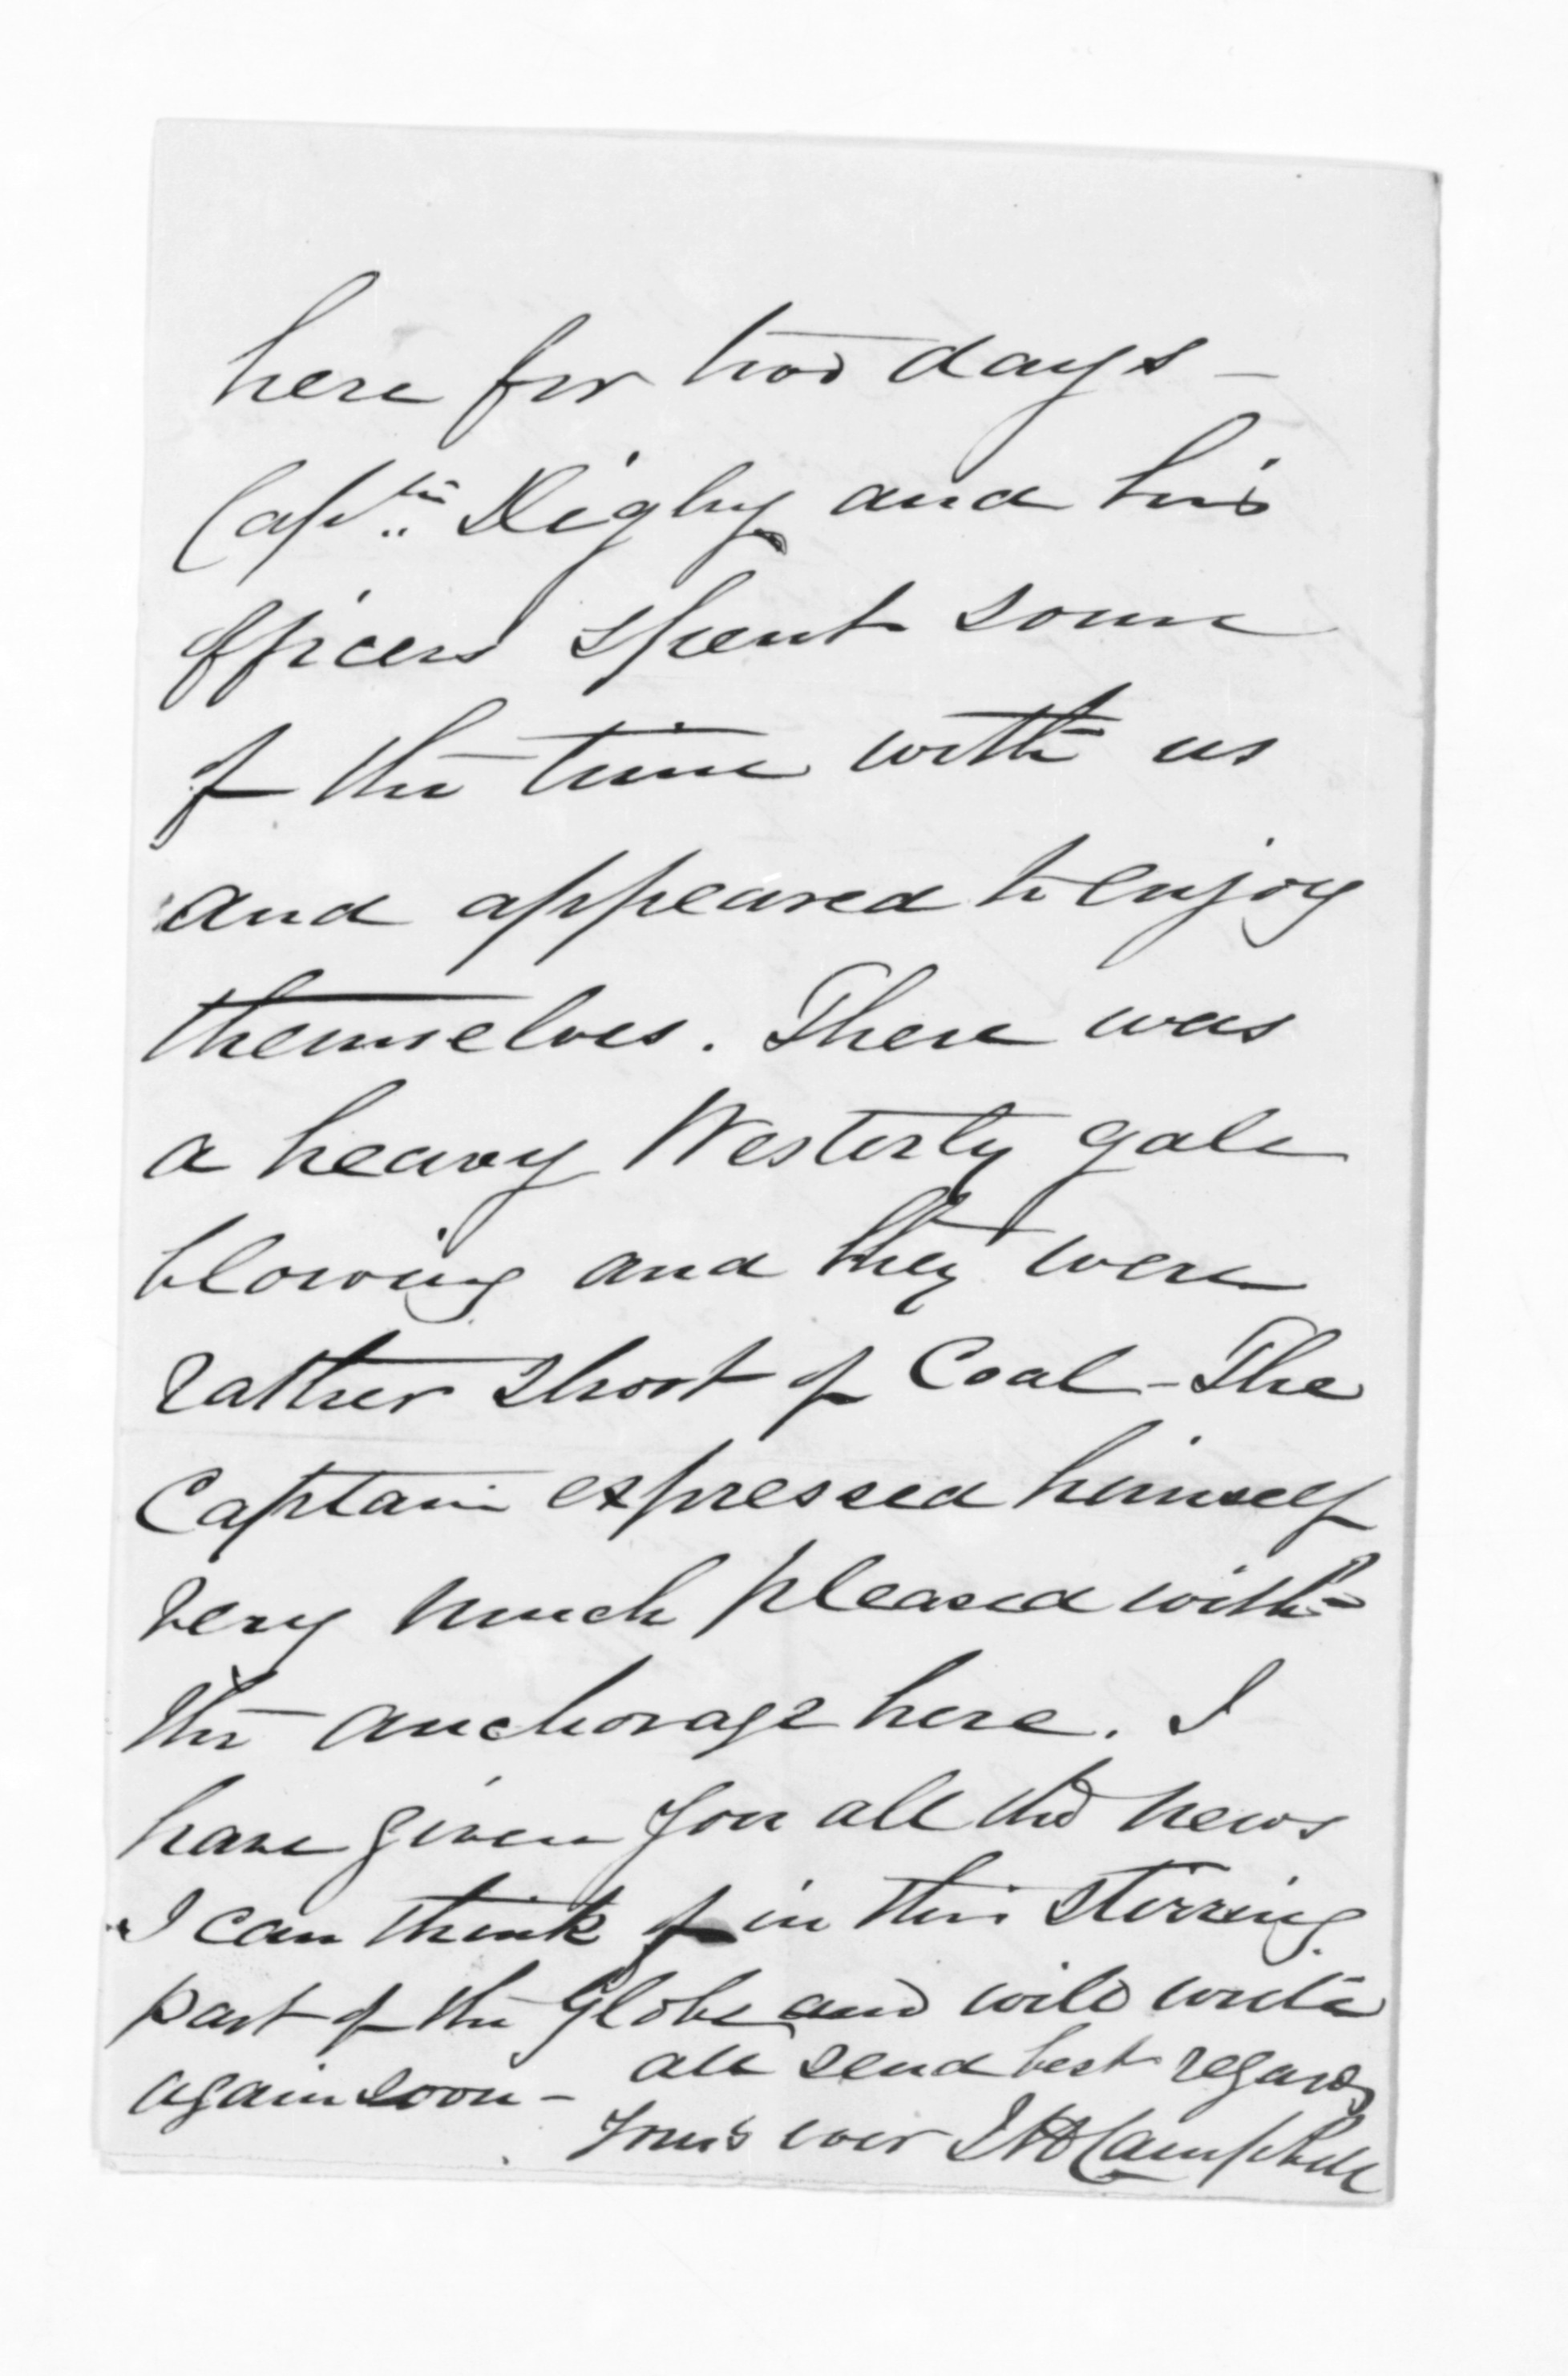 here for two days -
Captn. Digby and his
officers spent some
of the time with us
and appeared to enjoy
themselves. There was
a heavy Westerly gale
blowing and they were
rather short of Coal - The
Captain expressed himself
very much pleased with
the anchorage here. I
have given you all the news
I can think of in this stirring
part of the Globe and will write
again soon - all send best regards
Yours ever Campbell